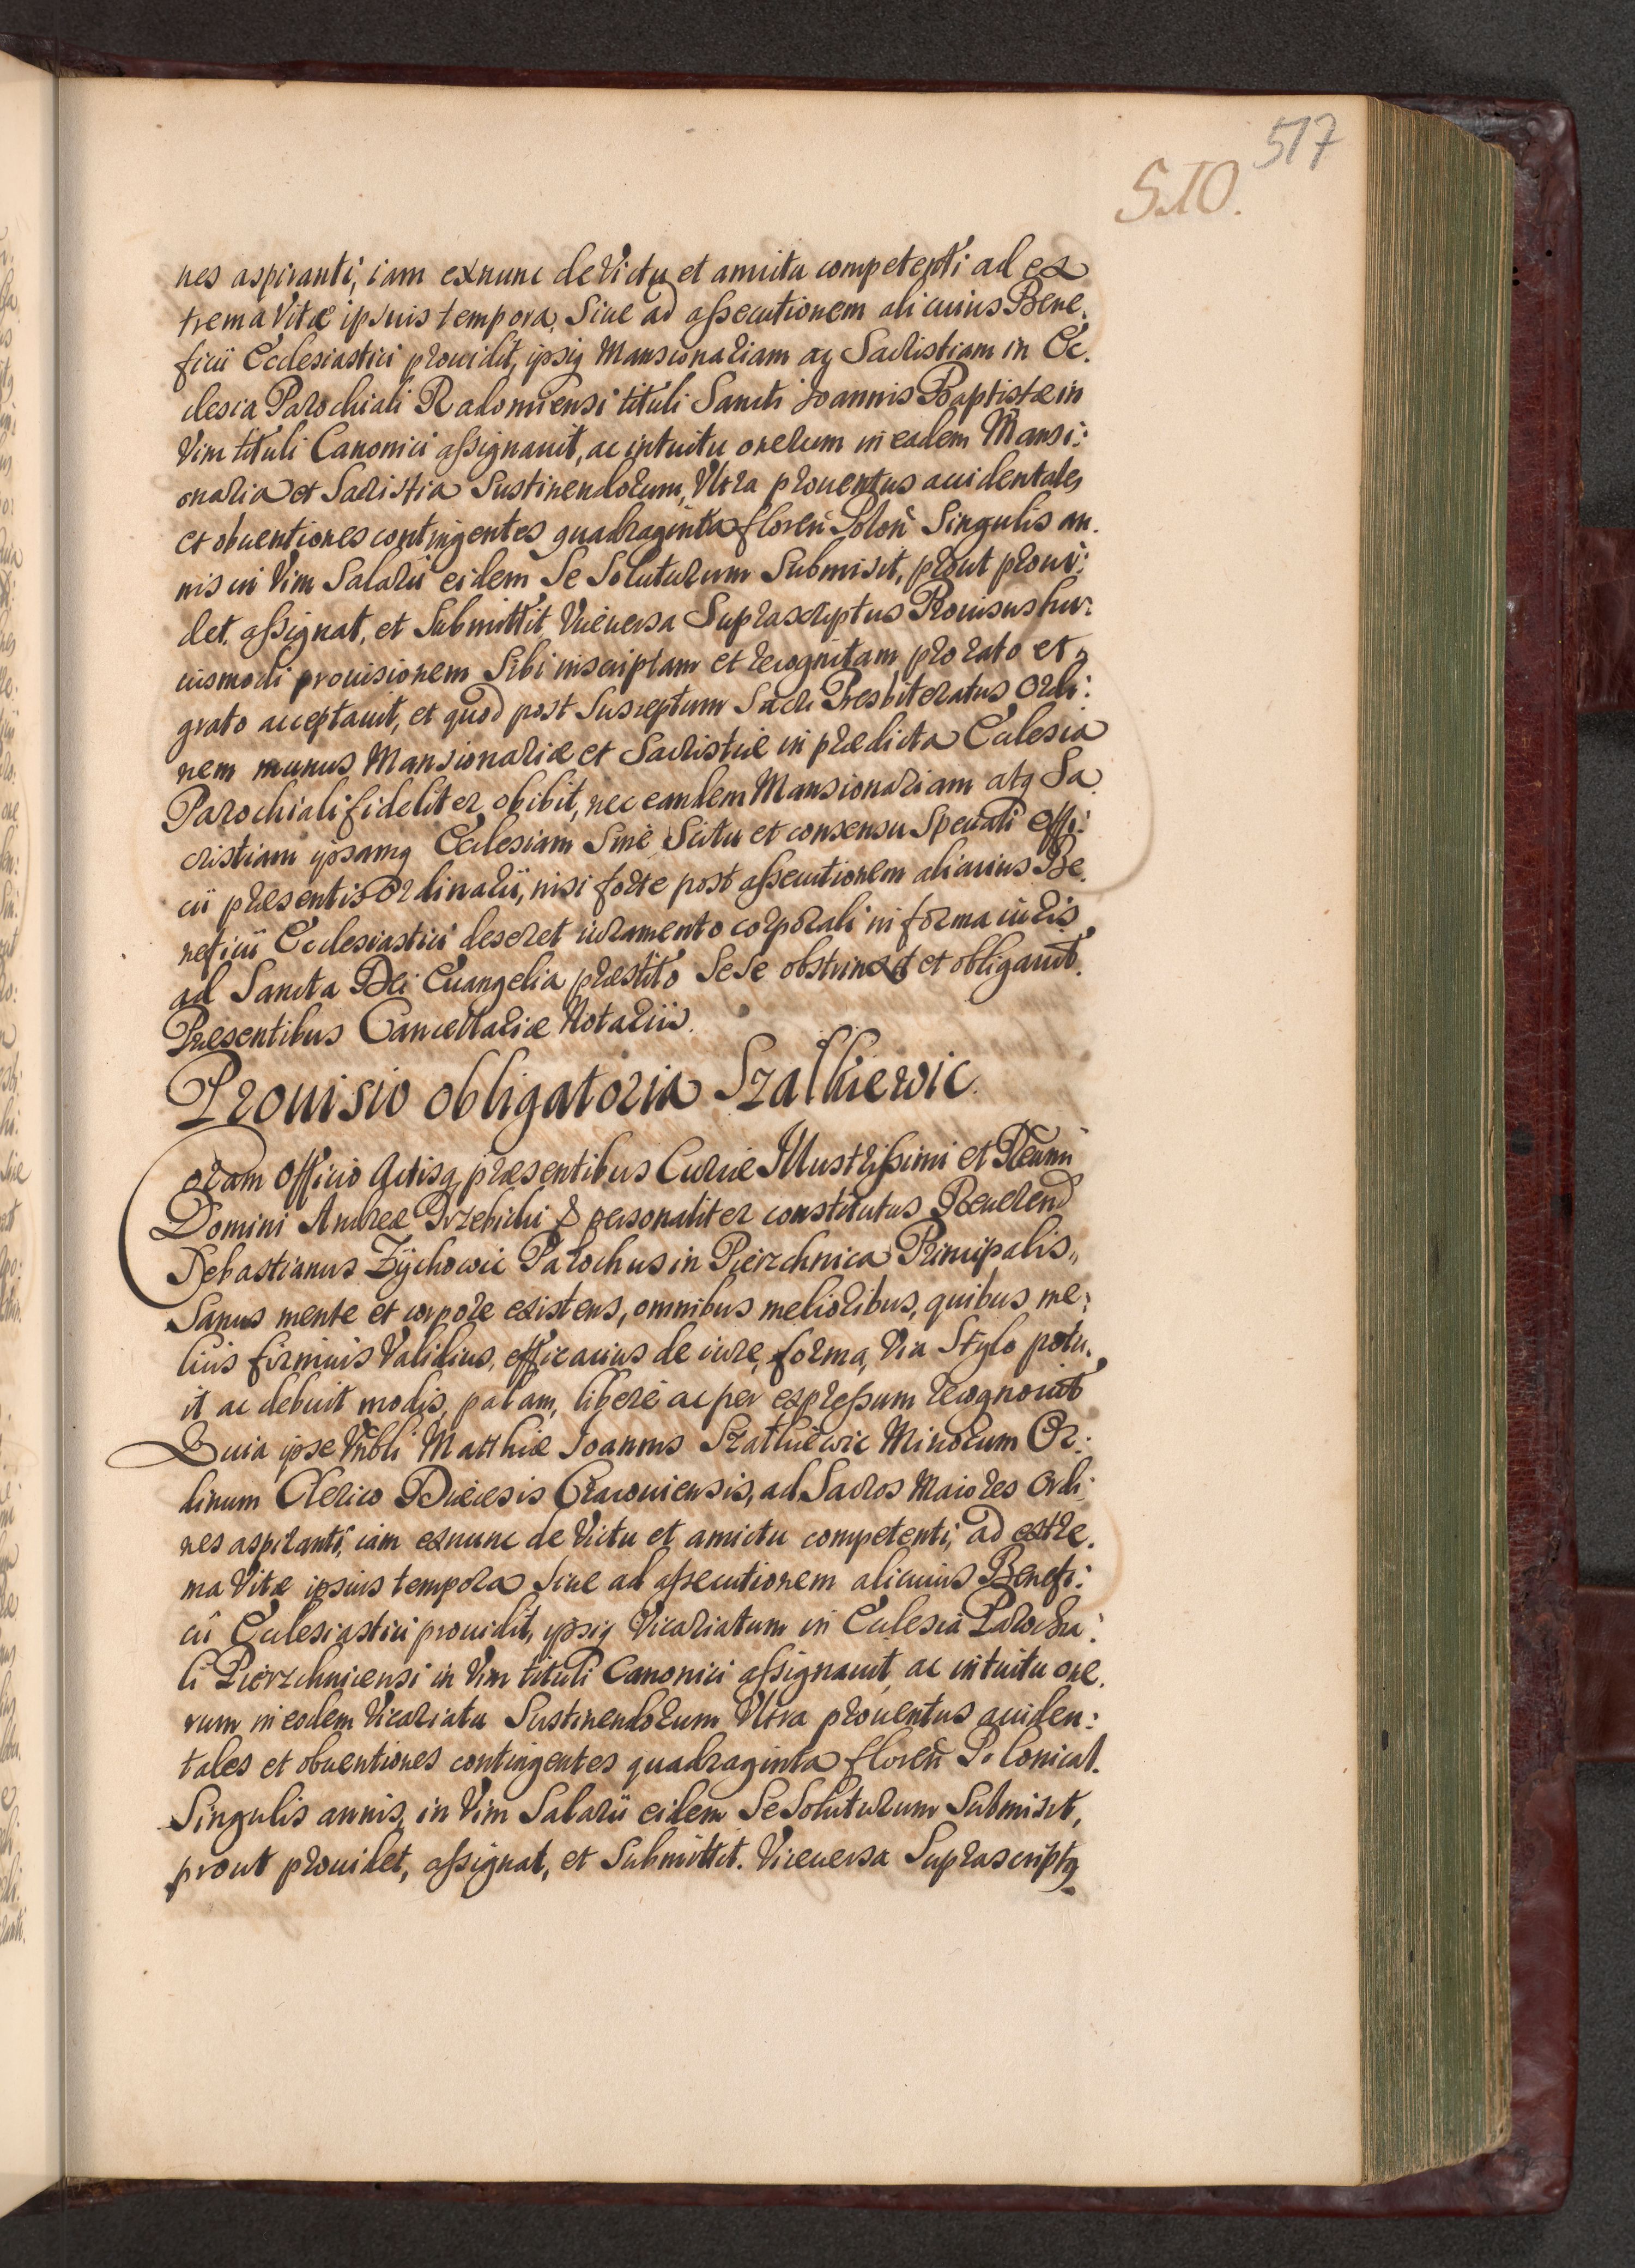 517
510.
nes aspiranti, iam exnunc de Victu et amictu competenti ad ex
trema Vitæ ipsius tempora, Siue ad assecutionem alicuius Bene.
ficii Ecclesiastici prouidit, ipsiq Mansionariam aq Sacristiam in Ec.
clesia Parochiali Radomiensi tituli Sancti Joannis Baptistæ in
Vim tituli Canonici assignauit, ac intuitu onerum in eadem Mansi:
onaria et Sacristia Sustinendorum, Vltra prouentus accidentales
et obuentiones contingentes quadraginta floreñ Poloñ Singulis an.
nis in Vim Salarii eidem Se Soluturum Submisit, prout proui:
det, assignat, et Submittit, Viceuersa Suprascriptus Prouisus hu:
iusmodi prouisionem Sibi inscriptam et recognitam pro rato et
grato acceptauit, et quod post Susceptum Sacri Presbiteratus Ordi:
nem munus Mansionariæ et Sacristiæ in prædicta Ecclesia
Parochiali fideliter obibit, nec eandem Mansionariam atq Sa
cristiam ipsamq Ecclesiam Sine Scitu et consensu Spectati Offi:
cii præsentis Ordinarii, nisi forte post assecutionem alicuius Be.
neficii Ecclesiastici deseret iuramento corporali in forma iuris
ad Sancta Dei Euangelia præstito Sese obstrinxit et obligauit.
Præsentibus Cancellariæ Notariis.
Prouisio obligatoria Szalkiewic.
Coram Officio Actisq præsentibus Curiæ Illustrissimi et Reuñi
Domini Andreæ Trzebicki & personaliter constitutus Reuerend
Sebastianus Zychowic Parochus in Pierzchnica Principalis,,
Sanus mente et corpore existens, omnibus melioribus, quibus me:
lius firmius Validius, efficacius de iure, forma, Via Stylo potu.
it ac debuit modis, palam, libere ac per expressum recognouit
Quia ipse Vñbli Matthiæ Joannis Szalkiewic Minorum Or:
dinum Clerico Diæcesis Cracouiensis, ad Sacros Maiores Ordi
nes aspiranti, iam exnunc de Victu et amictu competenti, ad extre.
ma Vitæ ipsius tempora Siue ad assecutionem alicuius Benefi:
cii Ecclesiastici prouidit, ipsiq Vicariatum in Ecclesia Parochia:
li Pierzchnicensi in Vim tituli Canonici assignauit, ac intuitu one.
rum in eodem Vicariatu Sustinendorum Vltra prouentus acciden:
tales et obuentiones contingentes quadraginta floreñ Polonical.
Singulis annis, in Vim Salarii eidem Se Soluturum Submisit,
prout prouidet, assignat, et Submittit. Viceuersa Suprascriptq